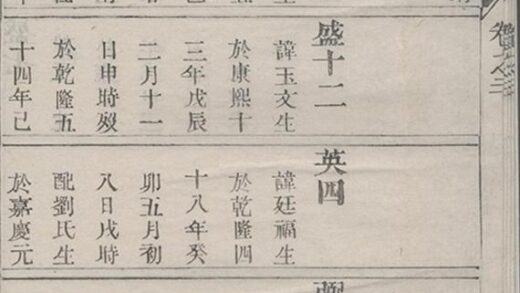 盛十二
諱玉文生
於康熙十
三年戊辰
二月十一
日申時歿
於乾隆五
十四年己
英四
諱廷福生
於乾隆四
十八年癸
卯五月初
八日戌時
配劉氏生
於嘉慶元